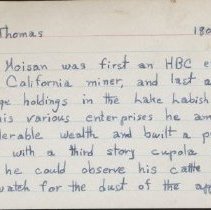 Thomas 180
Moisan was first an HBC e
California miner, and last a
ge holdings in the Lake Labish
his various enterprises he am
derable wealth and built a p
with a third story cupola
he could observe his cattle
watch for the dust of the app